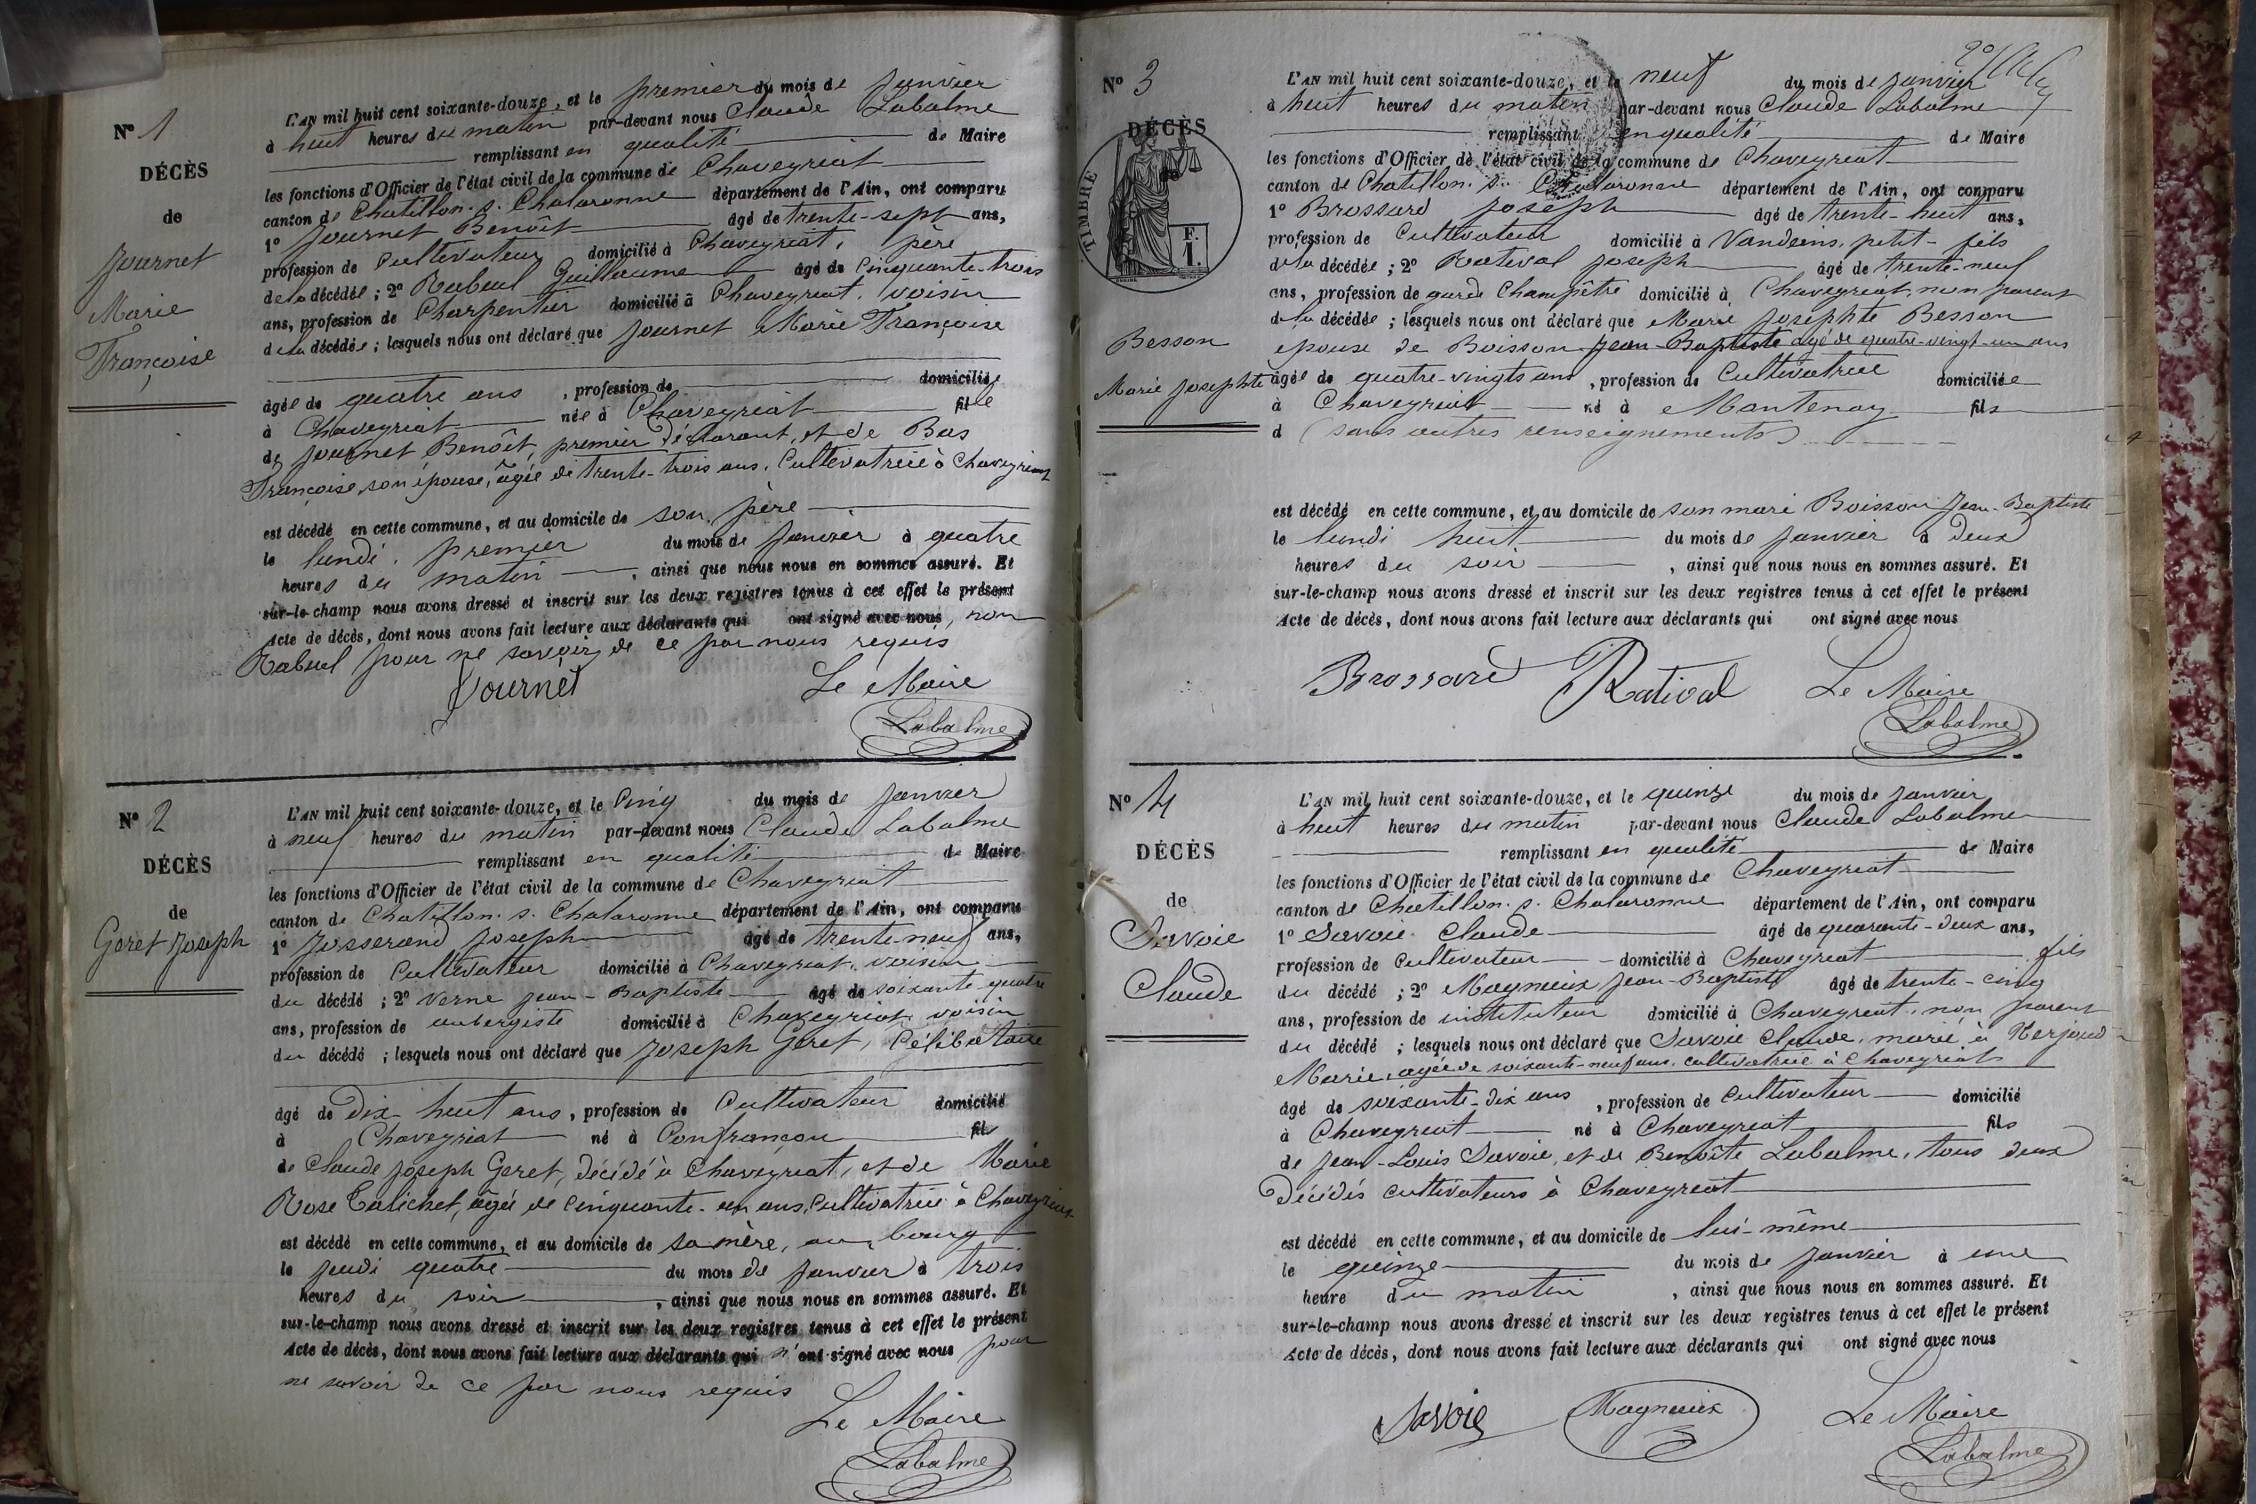 N° 1
DÉCÈS
de
Journet
Marie
Françoise
L'AN mil huit cent soixante-douze, et le premier du mois de Janvier
à huit heures du matin par-devant nous Claude Labalme
remplissant en qualité de Maire
les fonctions d'Officier de l'état civil de la commune de Chaveyriat
canton de Chatillon. s. Chalaronne département de l'Ain, ont comparu
1° Journet Benoît âgé de trente-sept ans,
profession de Cultivateur domicilié à Chaveyriat, père
de la décédée ; 2° Rabuel Guillaume âgé de Cinquante-trois
ans, profession de Charpentier domicilié à Chaveyriat, voisin
de la décédée ; lesquels nous ont déclaré que Journet Marie Françoise
âgée de quatre ans , profession de domiciliée
à Chaveyriat née à Chaveyriat fille
de Journet Benoît, premier déclarant, et de Bas
Françoise, son épouse, âgée de trente-trois ans, Cultivatrice à Chaveyriat
est décédé en cette commune, et au domicile de son père
le lundi, premier du mois de Janvier à quatre
heures du matin , ainsi que nous nous en sommes assuré. Et
sur-le-champ nous avons dressé et inscrit sur les deux registres tenus à cet effet le présent
Acte de décès, dont nous avons fait lecture aux déclarants qui ont signé avec nous, non
Rabuel pour ne savoir, de ce par nous requis
Journet Le Maire
Labalme
N° 2
DÉCÈS
de
Geret Joseph
L'AN mil huit cent soixante-douze, et le Cinq du mois de Janvier
à neuf heures du matin par-devant nous Claude Labalme
remplissant en qualité de Maire
les fonctions d'Officier de l'état civil de la commune de Chaveyriat
canton de Chatillon. s. Chalaronne département de l'Ain, ont comparu
1° Josserand Joseph âgé de trente-neuf ans,
profession de Cultivateur domicilié à Chaveyriat, voisin
du décédé ; 2° Verne Jean-Baptiste âgé de soixante-quatre
ans, profession de aubergiste domicilié à Chaveyriat, voisin
du décédé ; lesquels nous ont déclaré que Joseph Geret, Célibataire
âgé de Dix huit ans, profession de Cultivateur domicilié
à Chaveyriat né à Confrançon fils
de Claude Joseph Geret, décédé à Chaveyriat, et de Marie
Rose Calichet, âgée de cinquante-un ans, Cultivatrice à Chaveyriat
est décédé en cette commune, et au domicile de sa mère, au bourg
le jeudi quatre du mois de Janvier à trois
heures du soir , ainsi que nous nous en sommes assuré. Et
sur-le-champ nous avons dressé et inscrit sur les deux registres tenus à cet effet le présent
Acte de décès, dont nous avons fait lecture aux déclarants qui n'ont signé avec nous pour
ne savoir de ce par nous requis
Le Maire
Labalme
N° 3
DÉCÈS
TIMBRE
F.
1.
Besson
Marie Josephte
L'AN mil huit cent soixante-douze, et le neuf du mois de Janvier
à huit heures du matin par-devant nous Claude Labalme
remplissant en qualité de Maire
les fonctions d'Officier de l'état civil de la commune de Chaveyriat
canton de Chatillon. s. Chalaronne département de l'Ain, ont comparu
1° Brossard Joseph âgé de trente-huit ans,
profession de Cultivateur domicilié à Vandeins, petit-fils
de la décédée ; 2° Ratival Joseph âgé de trente-neuf
ans, profession de garde Champêtre domicilié à Chaveyriat, non parent
de la décédée ; lesquels nous ont déclaré que Marie Josephte Besson
épouse de Boisson Jean-Baptiste âgé de quatre-vingt-un ans
âgée de quatre-vingts ans , profession de Cultivatrice domiciliée
à Chaveyriat né à Mantenay fils
d (sans autres renseignements)
est décédé en cette commune, et au domicile de son mari Boisson Jean-Baptiste
le lundi huit du mois de Janvier à deux
heures du soir , ainsi que nous nous en sommes assuré. Et
sur-le-champ nous avons dressé et inscrit sur les deux registres tenus à cet effet le présent
Acte de décès, dont nous avons fait lecture aux déclarants qui ont signé avec nous
Brossard Ratival Le Maire
Labalme
N° 4
DÉCÈS
de
Savoie
Claude
L'AN mil huit cent soixante-douze, et le quinze du mois de Janvier
à huit heures du matin par-devant nous Claude Labalme
remplissant en qualité de Maire
les fonctions d'Officier de l'état civil de la commune de Chaveyriat
canton de Chatillon. s. Chalaronne département de l'Ain, ont comparu
1° Savoie Claude âgé de quarante-deux ans,
profession de Cultivateur domicilié à Chaveyriat fils
du décédé ; 2° Magnieux Jean-Baptiste âgé de trente-cinq
ans, profession de instituteur domicilié à Chaveyriat, non parent
du décédé ; lesquels nous ont déclaré que Savoie Claude, marié à
Marie, agée de soixante-neuf ans, cultivatrice à Chaveyriat
âgé de soixante-dix ans , profession de Cultivateur domicilié
à Chaveyriat né à Chaveyriat fils
de Jean-Louis Savoie, et de Benoîte Labalme, tous deux
Décédés cultivateurs à Chaveyriat
est décédé en cette commune, et au domicile de lui-même
le quinze du mois de Janvier à une
heure du matin , ainsi que nous nous en sommes assuré. Et
sur-le-champ nous avons dressé et inscrit sur les deux registres tenus à cet effet le présent
Acte de décès, dont nous avons fait lecture aux déclarants qui ont signé avec nous
Savoie Magnieux Le Maire
Labalme